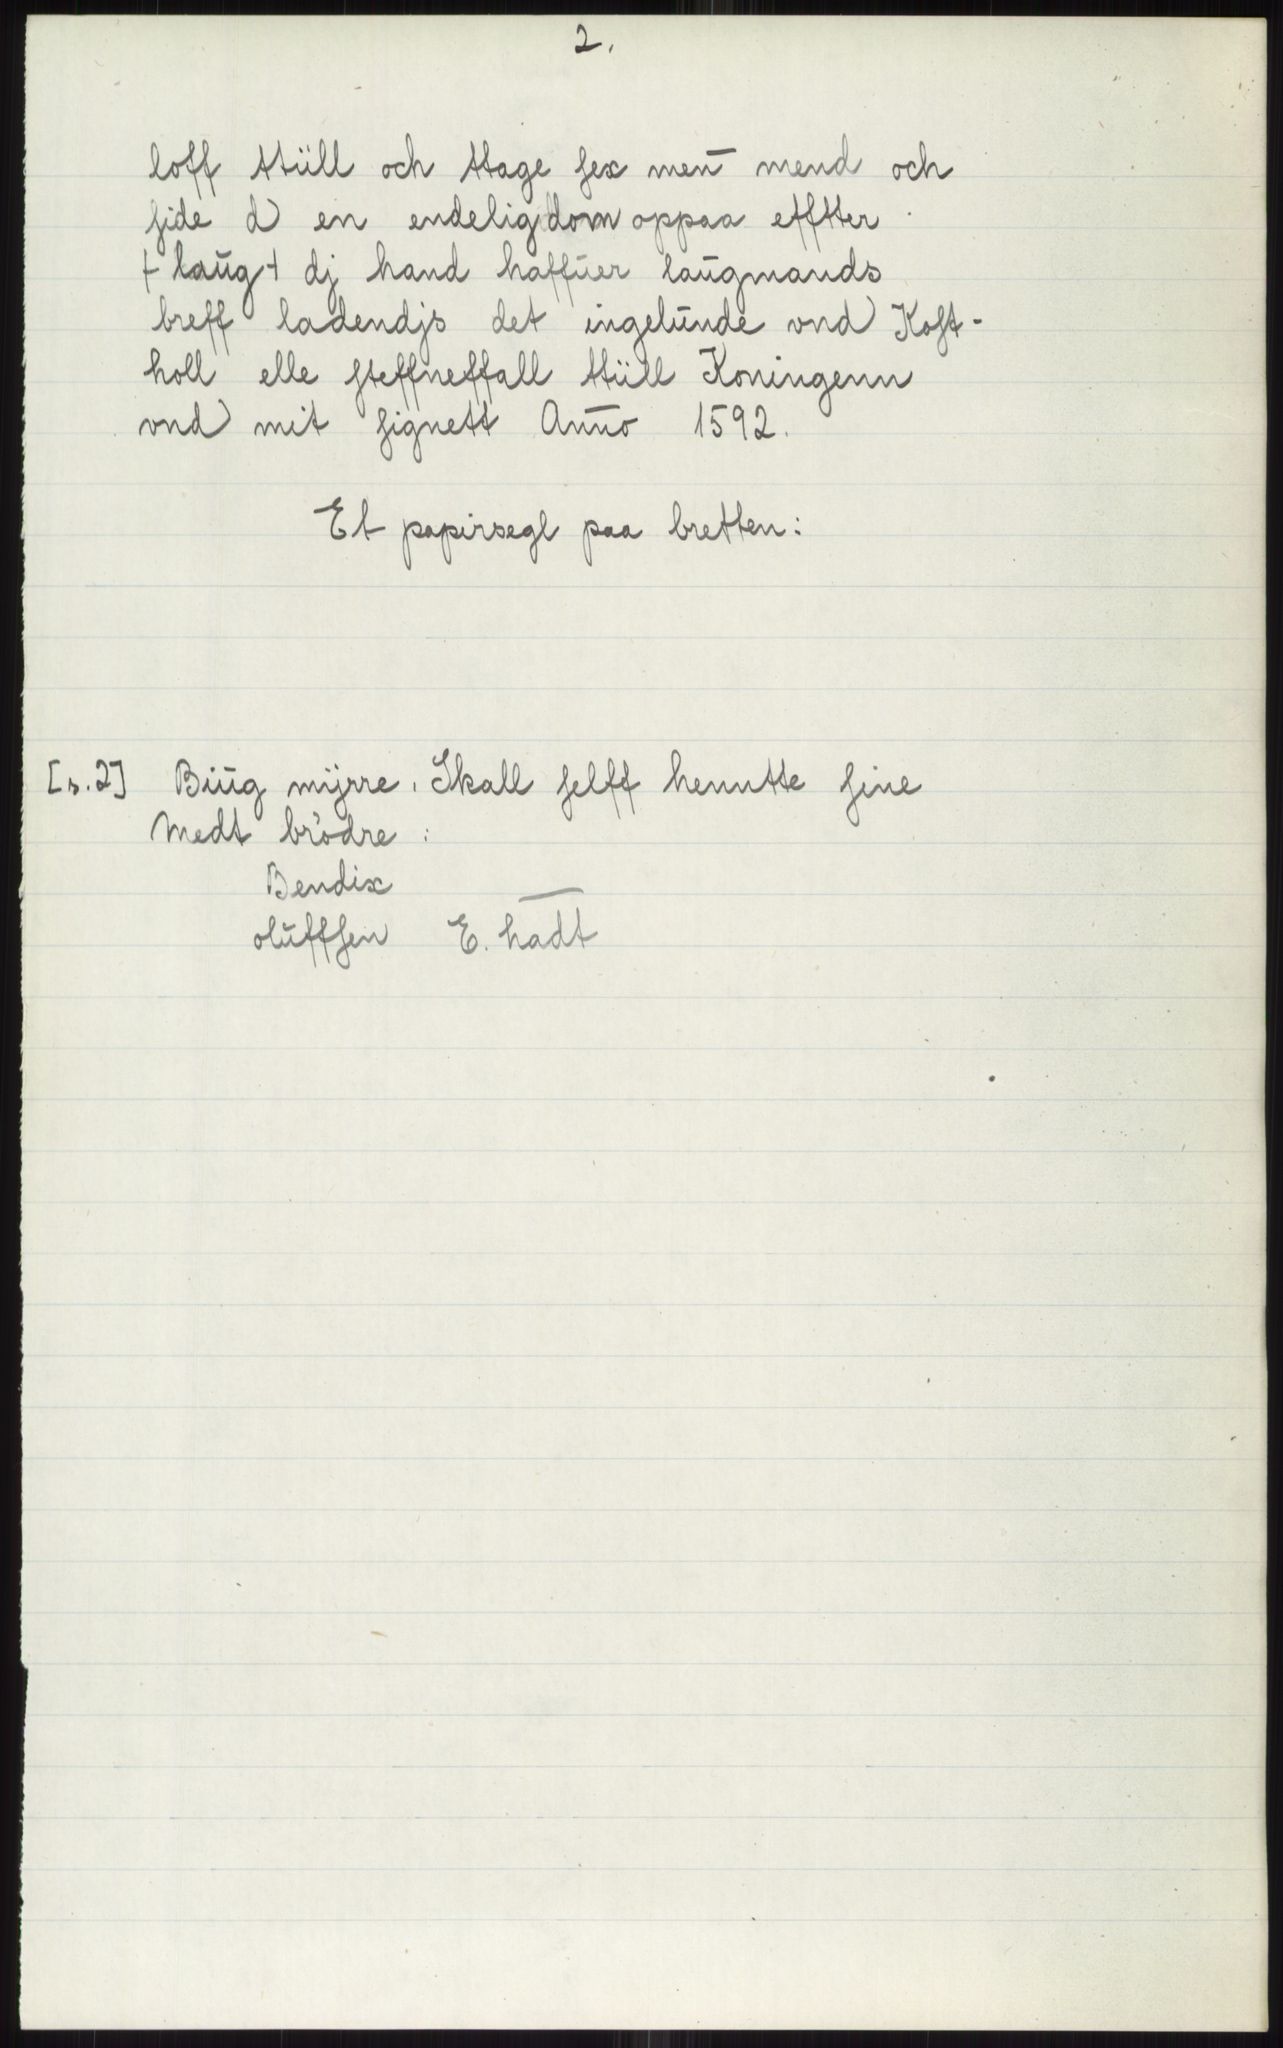 2.
loff ttüll och ttage sex men̄ mend och
side d en endelig dom oppaa efftter
+ laŭg + dj hand haffŭer laŭgmands
breff ladendjs det ingelŭnde vnd Kost-
holl elle steffneffall ttüll Koningenn
vnd mit signett An̄no 1592.
Et papirsegl paa bretten:
[s.2] Biŭg mÿrre. Skall selff henntte sine
Medt brödre :
Bendix
olŭffsen E. hadt